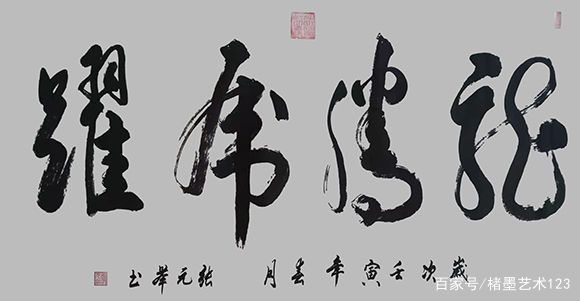 龍騰虎躍
歲次壬寅年春月 張元書
百家号/楮墨艺术123